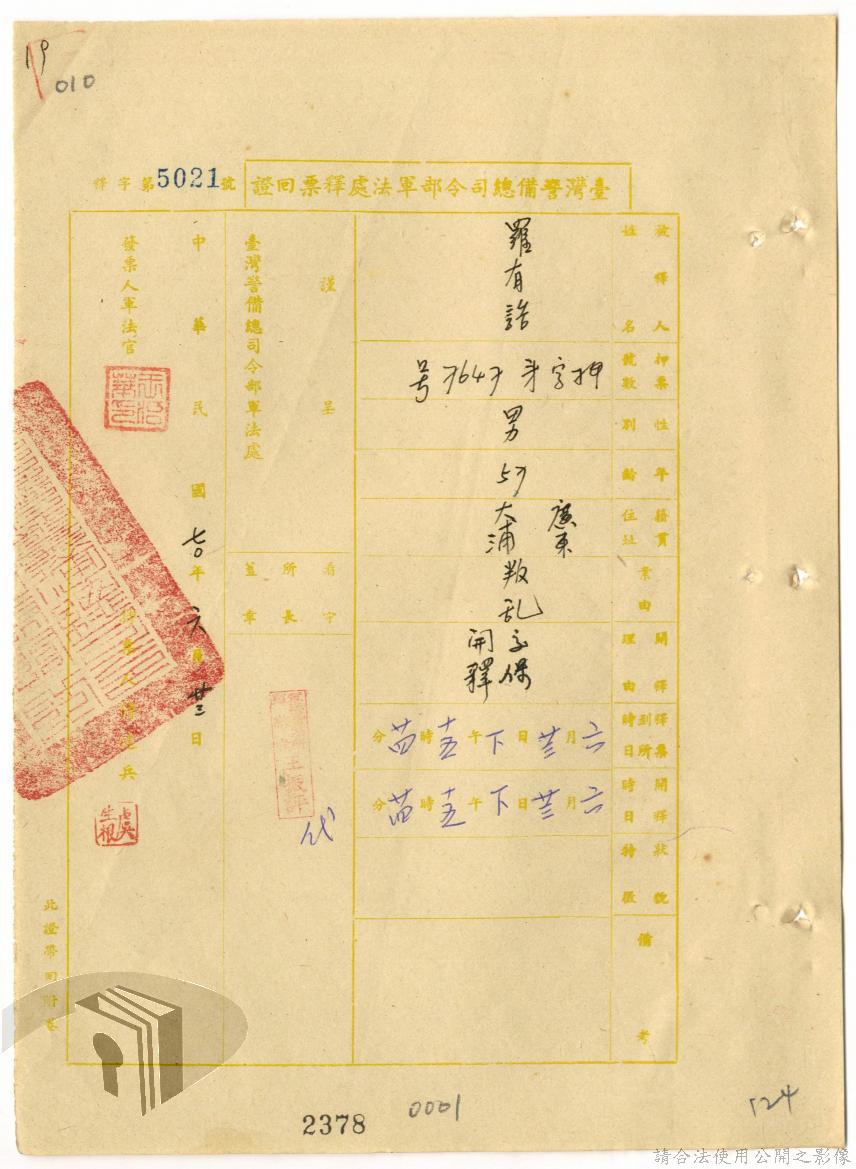 19
010
臺灣警備總司令部軍法處釋票回證
釋字第5021號
被釋人姓名
羅有誥
押票號數
押字第
号
性別
男
年齡
籍貫住址
廣東
大浦
案由
叛乱
開釋理由
交保
開釋
釋票到所時日
六月廿三日下午十五時廿四分
開釋時日
六月廿三日下午十五時廿四分
狀貌特徵
備考
謹呈
臺灣警備總司令部軍法處
看守所長蓋章
代
中華民國七〇年六月廿三日
發票人軍法官
此證帶回附卷
2378
0001
124
請合法使用公開之影像